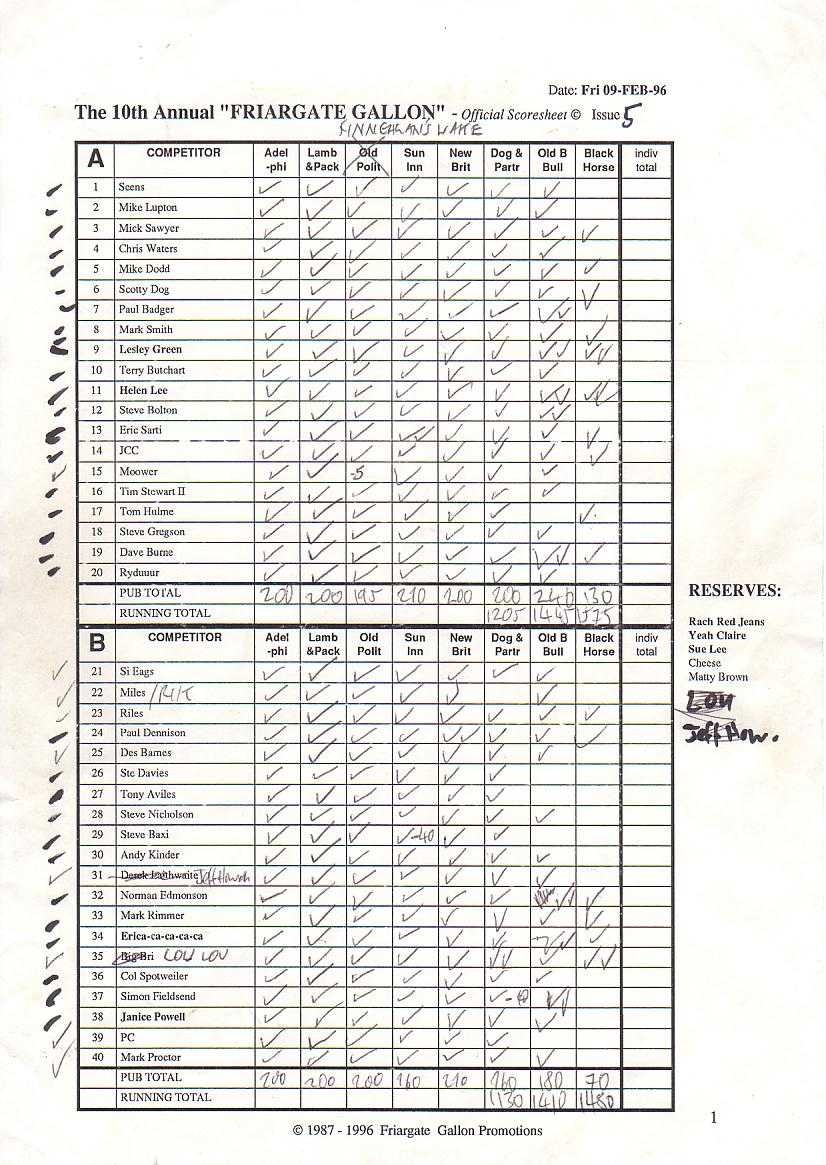 Date: Fri 09-FEB-96
The 10th Annual "FRIARGATE GALLON" - Official Scoresheet © Issue 5
FINNEGANS WAKE
A COMPETITOR Adel-phi Lamb &Pack Old Polit Sun Inn New Brit Dog & Partr Old B Bull Black Horse indiv total
1 Seens ✓ ✓ ✓ ✓ ✓ ✓ ✓
2 Mike Lupton ✓ ✓ ✓ ✓ ✓ ✓ ✓
3 Mick Sawyer ✓ ✓ ✓ ✓ ✓ ✓ ✓ ✓
4 Chris Waters ✓ ✓ ✓ ✓ ✓ ✓ ✓
5 Mike Dodd ✓ ✓ ✓ ✓ ✓ ✓ ✓ ✓
6 Scotty Dog ✓ ✓ ✓ ✓ ✓ ✓ ✓ ✓
7 Paul Badger ✓ ✓ ✓ ✓ ✓ ✓ ✓✓
8 Mark Smith ✓ ✓ ✓ ✓ ✓ ✓ ✓ ✓
9 Lesley Green ✓ ✓ ✓ ✓ ✓ ✓ ✓✓ ✓✓
10 Terry Butchart ✓ ✓ ✓ ✓ ✓ ✓ ✓
11 Helen Lee ✓ ✓ ✓ ✓ ✓ ✓ ✓✓ ✓✓
12 Steve Bolton ✓ ✓ ✓ ✓ ✓ ✓ ✓✓
13 Eric Sarti ✓ ✓ ✓ ✓✓ ✓ ✓ ✓ ✓
14 JCC ✓ ✓ ✓ ✓ ✓ ✓ ✓ ✓
15 Moower ✓ ✓ -5 ✓ ✓ ✓ ✓
16 Tim Stewart II ✓ ✓ ✓ ✓ ✓ ✓ ✓
17 Tom Hulme ✓ ✓ ✓ ✓ ✓ ✓ ✓
18 Steve Gregson ✓ ✓ ✓ ✓ ✓ ✓ ✓
19 Dave Burne ✓ ✓ ✓ ✓ ✓ ✓ ✓✓ ✓
20 Ryduuur ✓ ✓ ✓ ✓ ✓ ✓ ✓
PUB TOTAL 200 200 195 210 200 200 240 130
RUNNING TOTAL 1205 1445 1575
B COMPETITOR Adel-phi Lamb &Pack Old Polit Sun Inn New Brit Dog & Partr Old B Bull Black Horse indiv total
21 Si Eags ✓ ✓ ✓ ✓ ✓ ✓ ✓
22 Miles ✓ ✓ ✓ ✓ ✓ ✓
23 Riles ✓ ✓ ✓ ✓ ✓ ✓ ✓ ✓
24 Paul Dennison ✓ ✓ ✓ ✓ ✓✓ ✓ ✓ ✓
25 Des Barnes ✓ ✓ ✓ ✓ ✓ ✓ ✓
26 Ste Davies ✓ ✓ ✓ ✓ ✓ ✓
27 Tony Aviles ✓ ✓ ✓ ✓ ✓ ✓
28 Steve Nicholson ✓ ✓ ✓ ✓ ✓ ✓ ✓
29 Steve Baxi ✓ ✓ ✓ ✓-40 ✓ ✓
30 Andy Kinder ✓ ✓ ✓ ✓ ✓ ✓ ✓
31 Derek Jaithwaite ✓ ✓ ✓ ✓ ✓ ✓ ✓
32 Norman Edmonson ✓ ✓ ✓ ✓ ✓ ✓ ✓✓ ✓
33 Mark Rimmer ✓ ✓ ✓ ✓ ✓ ✓ ✓ ✓
34 Erica-ca-ca-ca-ca ✓ ✓ ✓ ✓ ✓ ✓✓ ✓ ✓
35 Big Bri LOU LOU ✓ ✓ ✓ ✓ ✓ ✓✓ ✓ ✓✓
36 Col Spotweiler ✓ ✓ ✓ ✓ ✓ ✓ ✓
37 Simon Fieldsend ✓ ✓ ✓ ✓ ✓ ✓ ✓✓
38 Janice Powell ✓ ✓ ✓ ✓ ✓ ✓ ✓
39 PC ✓ ✓ ✓ ✓ ✓ ✓
40 Mark Proctor ✓ ✓ ✓ ✓ ✓ ✓ ✓
PUB TOTAL 200 200 200 160 210 160 180 70
RUNNING TOTAL 1130 1410 1480
RESERVES:
Rach Red Jeans
Yeah Claire
Sue Lee
Cheese
Matty Brown
LOU
Jeff How.
1
© 1987 - 1996 Friargate Gallon Promotions